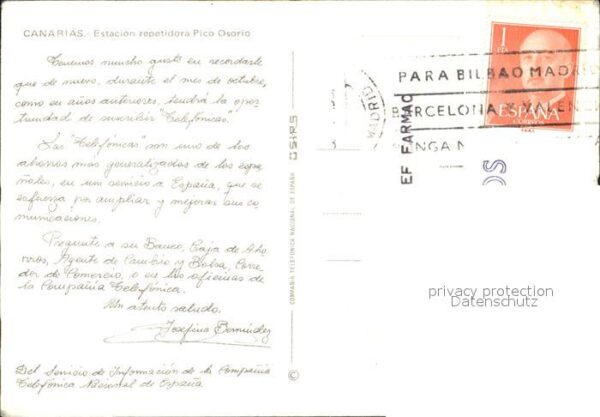 CANARIAS.- Estación repetidora Pico Osorio
Tenemos mucho gusto en recordarle
que de nuevo, durante el mes de octubre,
como en años anteriores, tendrá la opor
tunidad de suscribir "Telefónicas".
Las "Telefónicas" son uno de los
ahorros más generalizados de los espa
ñoles, en un servicio a España, que se
esfuerza por ampliar y mejorar sus co
municaciones.
Pregunte a su Banco, Caja de Aho
rros, Agente de Cambio y Bolsa, Corre
dor de Comercio, o en las oficinas de
la Compañía Telefónica.
Un atento saludo.
Josefina Bermúdez
Del Servicio de Información de la Compañía
Telefónica Nacional de España
©
COMPAÑIA TELEFONICA NACIONAL DE ESPAÑA
OSIRS
1
PTA
ESPAÑA
CORREOS
MADRID
PARA BILBAO MADRI
BARCELONA Y VALEN
NGA N
EF FARMAC
OS
privacy protection
Datenschutz